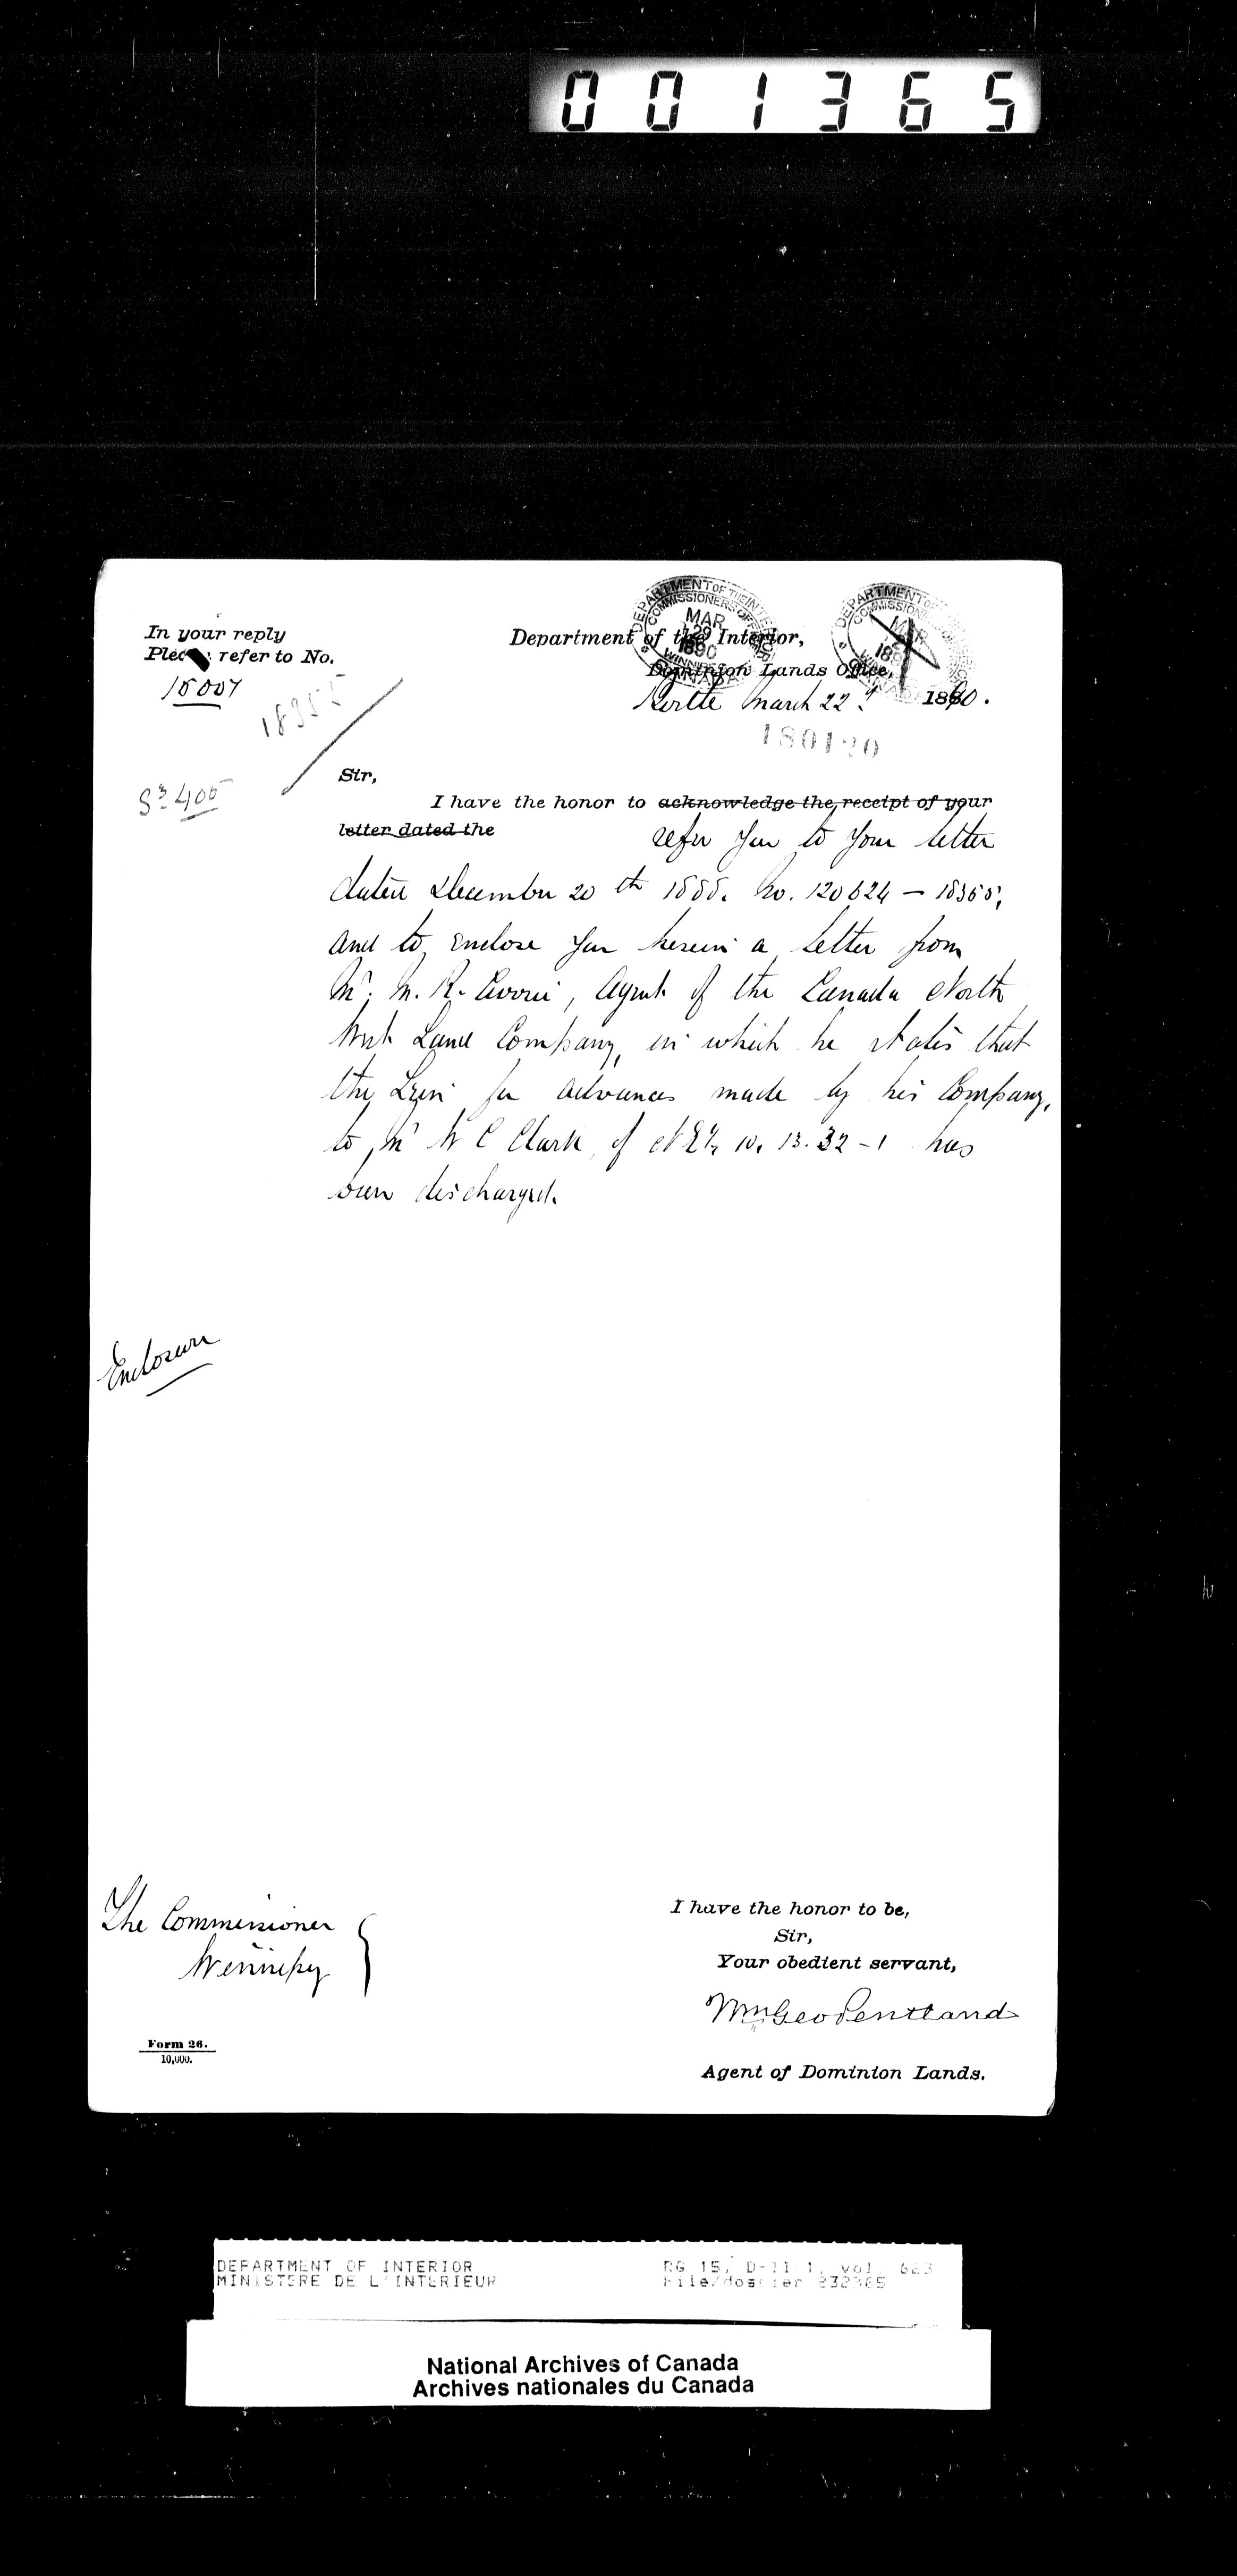 001365
In your reply
Please refer to No.
Department of the Interior,
Dominion Lands Office,
Birtle March 22d 1890.
18355
180120
Sir,
I have the honor to acknowledge the receipt of your
letter dated the refer you to your letter
dated December 20th 1888. No. 120624 – 18355,
and to enclose you herein a letter from
Mr. , Agent of the Canada North
West Land Company, in which he states that
the Lien for advances made by his Company,
to Mr W C Clark, of NE¼ 10. 13. 32 – 1 has
been discharged.
Enclosure
The Commissioner
Winnipeg
I have the honor to be,
Sir,
Your obedient servant,
Wm Geo Pentland
Agent of Dominion Lands.
Form 26.
10,000.
DEPARTMENT OF INTERIOR
MINISTERE DE L'INTERIEUR
RG 15, D-II 1, vol. 623
File/dossier 232365
National Archives of Canada
Archives nationales du Canada